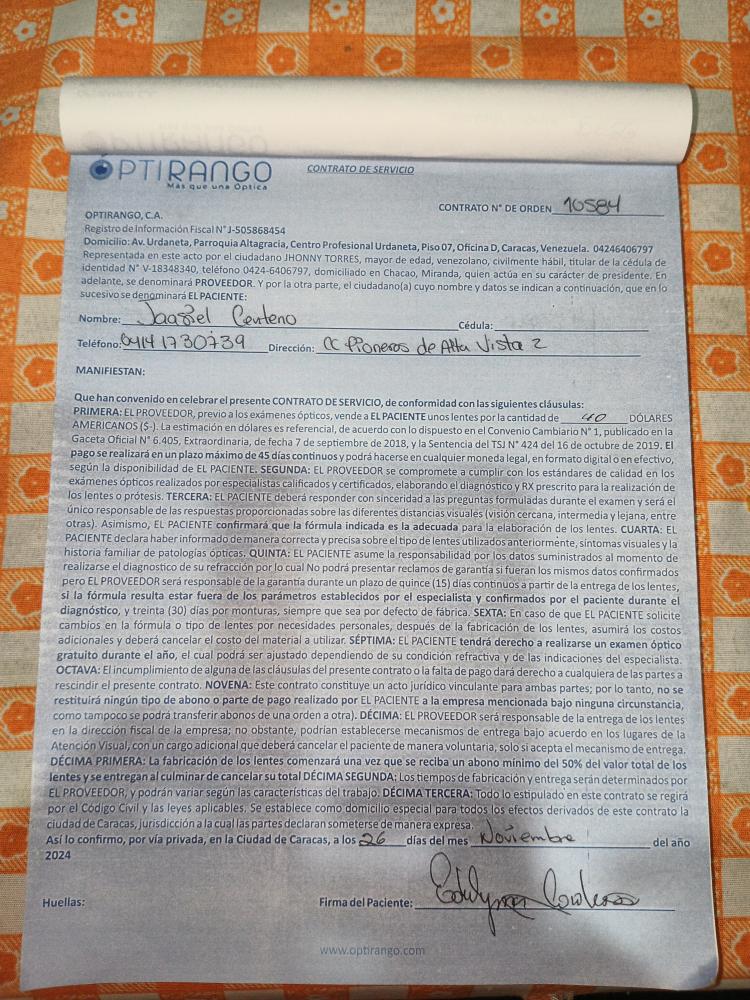 ÓPTIRANGO
Más que una Óptica
CONTRATO DE SERVICIO
CONTRATO N° DE ORDEN 10584
OPTIRANGO, C.A.
Registro de Información Fiscal N° J-505868454
Domicilio: Av. Urdaneta, Parroquia Altagracia, Centro Profesional Urdaneta, Piso 07, Oficina D, Caracas, Venezuela. 04246406797
Representada en este acto por el ciudadano JHONNY TORRES, mayor de edad, venezolano, civilmente hábil, titular de la cédula de
identidad N° V-18348340, teléfono 0424-6406797, domiciliado en Chacao, Miranda, quien actúa en su carácter de presidente. En
adelante, se denominará PROVEEDOR. Y por la otra parte, el ciudadano(a) cuyo nombre y datos se indican a continuación, que en lo
sucesivo se denominará EL PACIENTE:
Nombre: Jaaziel Centeno Cédula:
Teléfono: 04141730739 Dirección: CC Pioneros de Alta Vista 2
MANIFIESTAN:
Que han convenido en celebrar el presente CONTRATO DE SERVICIO, de conformidad con las siguientes cláusulas:
PRIMERA: EL PROVEEDOR, previo a los exámenes ópticos, vende a EL PACIENTE unos lentes por la cantidad de 40 DÓLARES
AMERICANOS ($-). La estimación en dólares es referencial, de acuerdo con lo dispuesto en el Convenio Cambiario N° 1, publicado en la
Gaceta Oficial N° 6.405, Extraordinaria, de fecha 7 de septiembre de 2018, y la Sentencia del TSJ N° 424 del 16 de octubre de 2019. El
pago se realizará en un plazo máximo de 45 días continuos y podrá hacerse en cualquier moneda legal, en formato digital o en efectivo,
según la disponibilidad de EL PACIENTE. SEGUNDA: EL PROVEEDOR se compromete a cumplir con los estándares de calidad en los
exámenes ópticos realizados por especialistas calificados y certificados, elaborando el diagnóstico y RX prescrito para la realización de
los lentes o prótesis. TERCERA: EL PACIENTE deberá responder con sinceridad a las preguntas formuladas durante el examen y será el
único responsable de las respuestas proporcionadas sobre las diferentes distancias visuales (visión cercana, intermedia y lejana, entre
otras). Asimismo, EL PACIENTE confirmará que la fórmula indicada es la adecuada para la elaboración de los lentes. CUARTA: EL
PACIENTE declara haber informado de manera correcta y precisa sobre el tipo de lentes utilizados anteriormente, síntomas visuales y la
historia familiar de patologías ópticas. QUINTA: EL PACIENTE asume la responsabilidad por los datos suministrados al momento de
realizarse el diagnostico de su refracción por lo cual No podrá presentar reclamos de garantía si fueran los mismos datos confirmados
pero EL PROVEEDOR será responsable de la garantía durante un plazo de quince (15) días continuos a partir de la entrega de los lentes,
si la fórmula resulta estar fuera de los parámetros establecidos por el especialista y confirmados por el paciente durante el
diagnóstico, y treinta (30) días por monturas, siempre que sea por defecto de fábrica. SEXTA: En caso de que EL PACIENTE solicite
cambios en la fórmula o tipo de lentes por necesidades personales, después de la fabricación de los lentes, asumirá los costos
adicionales y deberá cancelar el costo del material a utilizar. SÉPTIMA: EL PACIENTE tendrá derecho a realizarse un examen óptico
gratuito durante el año, el cual podrá ser ajustado dependiendo de su condición refractiva y de las indicaciones del especialista.
OCTAVA: El incumplimiento de alguna de las cláusulas del presente contrato o la falta de pago dará derecho a cualquiera de las partes a
rescindir el presente contrato. NOVENA: Este contrato constituye un acto jurídico vinculante para ambas partes; por lo tanto, no se
restituirá ningún tipo de abono o parte de pago realizado por EL PACIENTE a la empresa mencionada bajo ninguna circunstancia,
como tampoco se podrá transferir abonos de una orden a otra). DÉCIMA: EL PROVEEDOR será responsable de la entrega de los lentes
en la dirección fiscal de la empresa; no obstante, podrían establecerse mecanismos de entrega bajo acuerdo en los lugares de la
Atención Visual, con un cargo adicional que deberá cancelar el paciente de manera voluntaria, solo si acepta el mecanismo de entrega.
DÉCIMA PRIMERA: La fabricación de los lentes comenzará una vez que se reciba un abono mínimo del 50% del valor total de los
lentes y se entregan al culminar de cancelar su total DÉCIMA SEGUNDA: Los tiempos de fabricación y entrega serán determinados por
EL PROVEEDOR, y podrán variar según las características del trabajo. DÉCIMA TERCERA: Todo lo estipulado en este contrato se regirá
por el Código Civil y las leyes aplicables. Se establece como domicilio especial para todos los efectos derivados de este contrato la
ciudad de Caracas, jurisdicción a la cual las partes declaran someterse de manera expresa.
Así lo confirmo, por vía privada, en la Ciudad de Caracas, a los 26 días del mes Noviembre del año
2024
Huellas: Firma del Paciente:
www.optirango.com